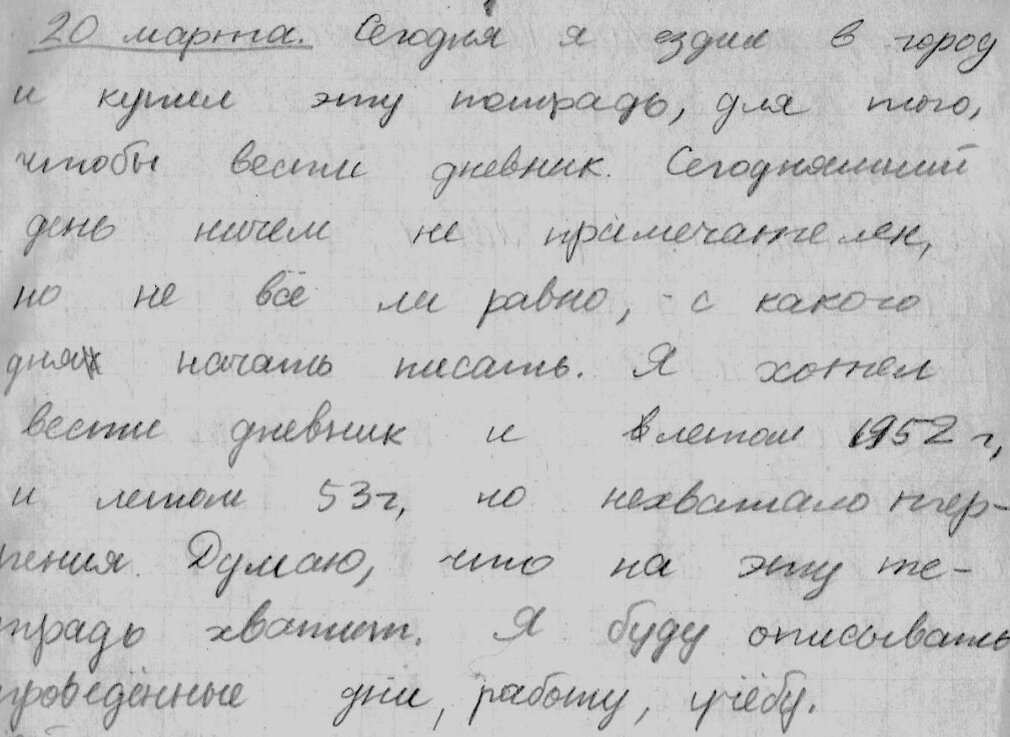 20 марта. Сегодня я ездил в город
и купил эту тетрадь, для того,
чтобы вести дневник. Сегодняшний
день ничем не примечателен,
но не всё ли равно, с какого
дня начать писать. Я хотел
вести дневник и летом 1952 г,
и летом 53 г, но нехватало тер-
пения. Думаю, что на эту те-
традь хватит. Я буду описывать
проведённые дни, работу, учёбу.